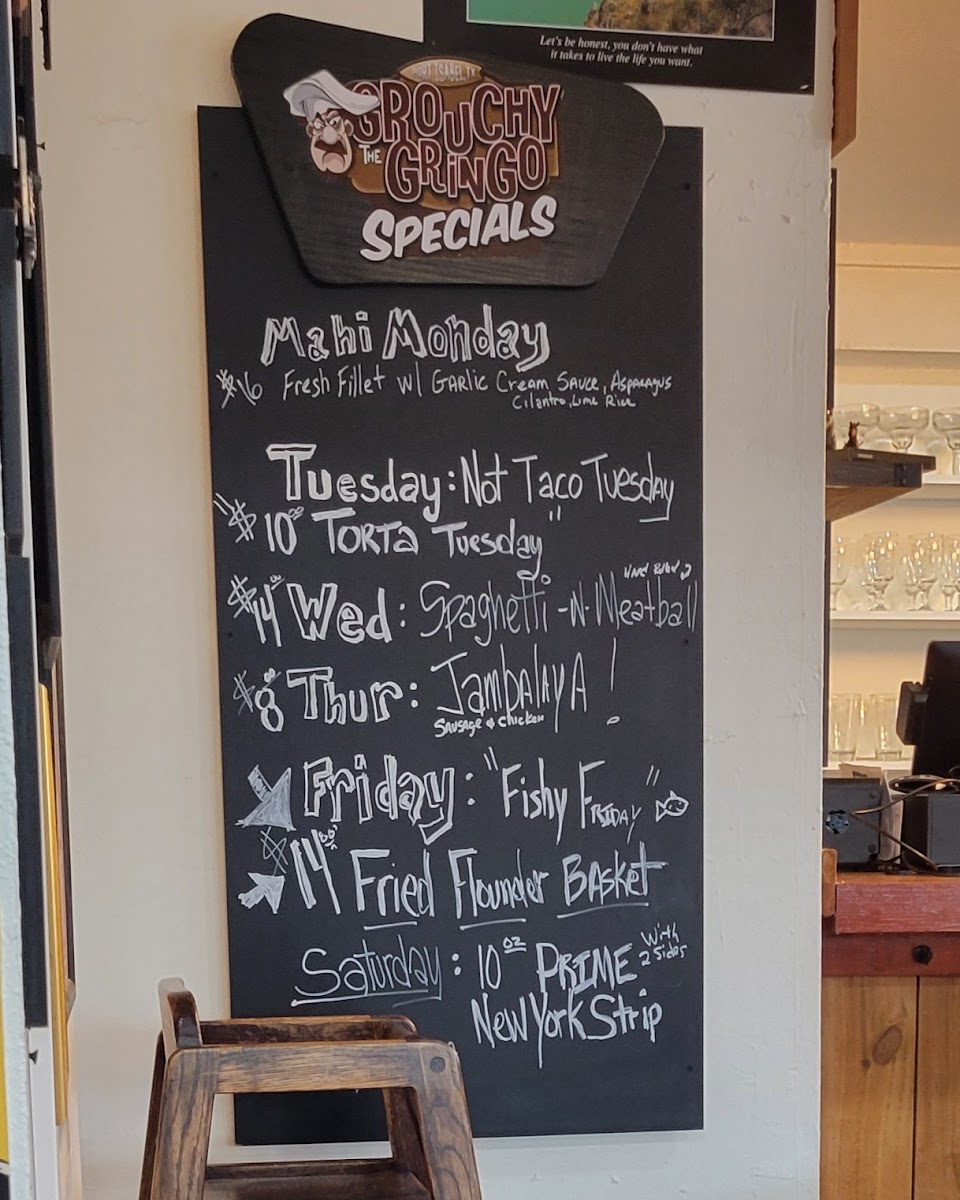 Let's be honest, you don't have what
it takes to live the life you want.
PORT ISABEL, TX
GROUCHY
THE GRINGO
SPECIALS
Mahi Monday
$16 Fresh Fillet w/ Garlic Cream Sauce, Asparagus
Cilantro, Lime Rice
Tuesday: Not Taco Tuesday
$10 "Torta Tuesday"
$14 Wed: Spaghetti -N- Meatball
$8 Thur: Jambalaya!
Sausage & Chicken
Friday: "Fishy Friday"
$14 Fried Flounder Basket
Saturday: 10 oz Prime With
2 Sides
New York Strip